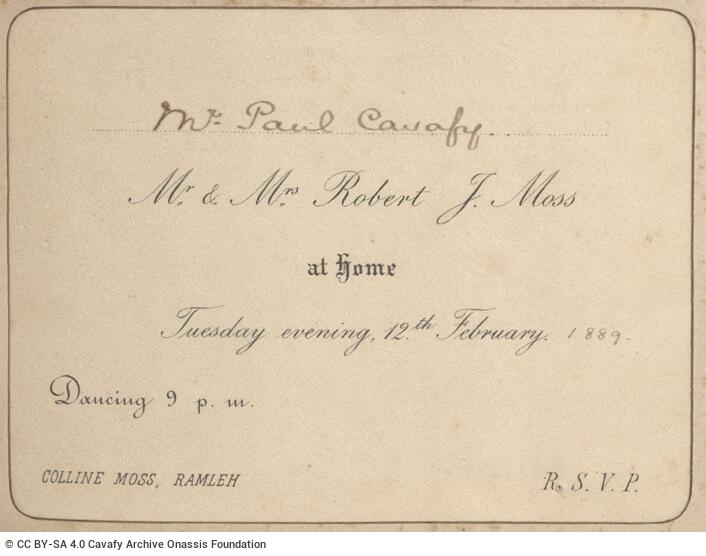 Mr. Paul Cavafy
Mr. & Mrs. Robert J. Moss
at Home
Tuesday evening, 12.th February. 1889.
Dancing 9 p. m.
COLLINE MOSS, RAMLEH
R. S. V. P.
© CC BY-SA 4.0 Cavafy Archive Onassis Foundation